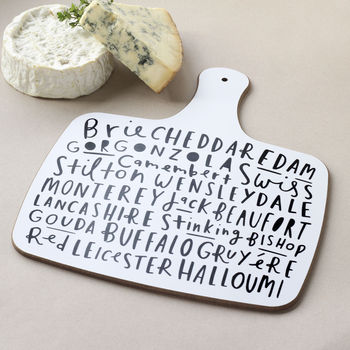 Brie CHEDDAR EDAM
GORGONZOLA Swiss
Stilton Camembert
WENSLEYDALE
MONTEREY Jack BEAUFORT
LANCASHIRE Stinking BISHOP
GOUDA BUFFALO GRUYÉRE
Red LEICESTER HALLOUMI